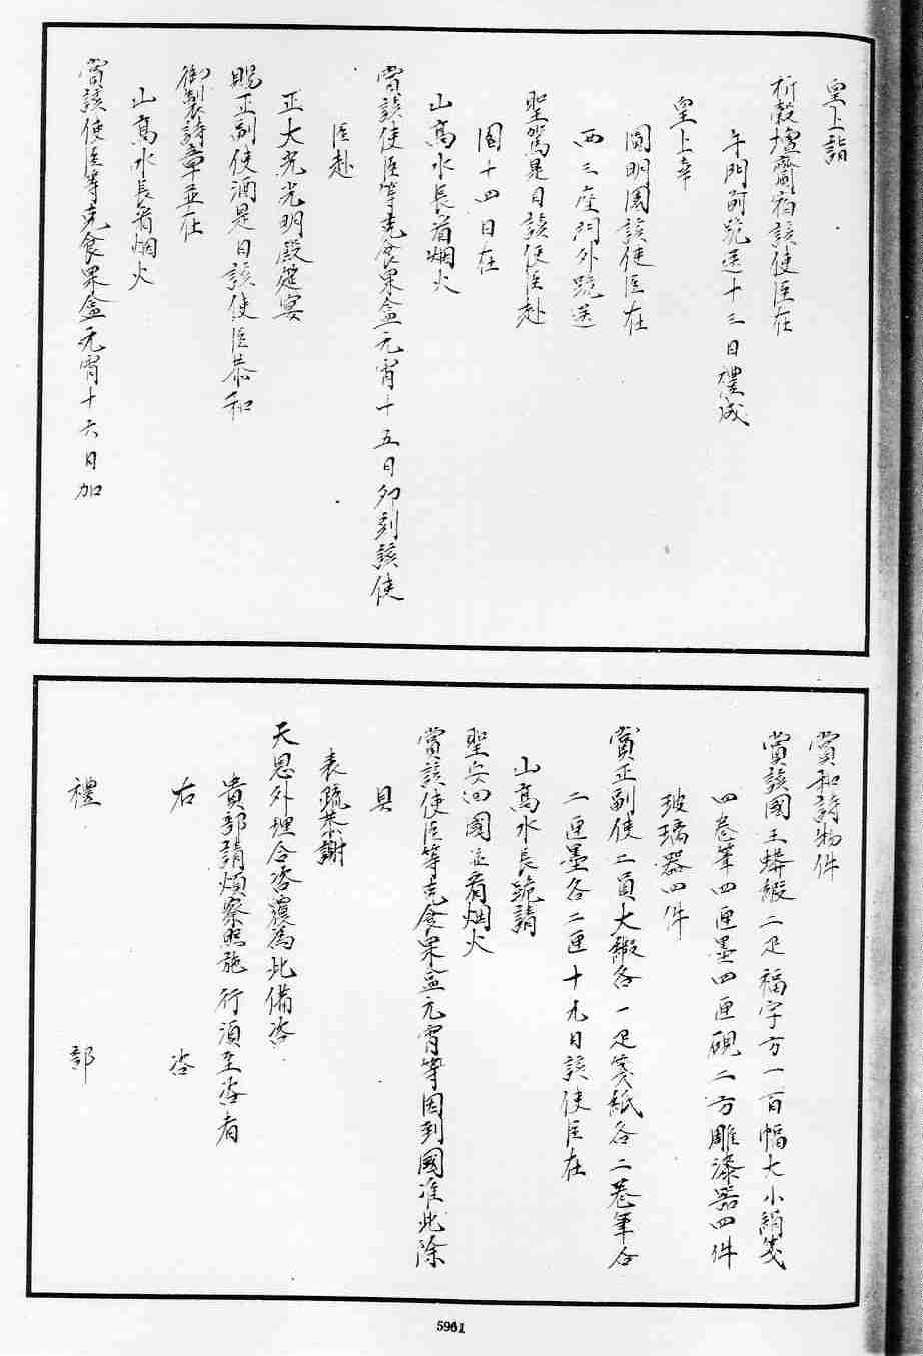 皇上詣
祈穀壇齋宿該使臣在
午門前跪送十三日禮成
皇上幸
圓明園該使臣在
西三座門外跪送
聖駕是日該使臣赴
園十四日在
山高水長看烟火
賞該使臣等克食果盒元宵十五日卯刻該使
臣赴
正大光明殿筵宴
賜正副使酒是日該使臣恭和
御製詩章並在
山高水長看烟火
賞該使臣等克食果盒元宵十六日加
賞和詩物件
賞該國王蟒緞二疋福字方一百幅大小絹箋
四卷筆四匣墨四匣硯二方雕漆器四件
玻璃器四件
賞正副使二員大緞各一疋箋紙各二卷筆各
二匣墨各二匣十九日該使臣在
山高水長跪請
聖安回國並看烟火
賞該使臣等克食果盒元宵等因到國准此除
具
表疏恭謝
天恩外理合咨覆為此備咨
貴部請煩察照施行須至咨者
右咨
禮部
5961